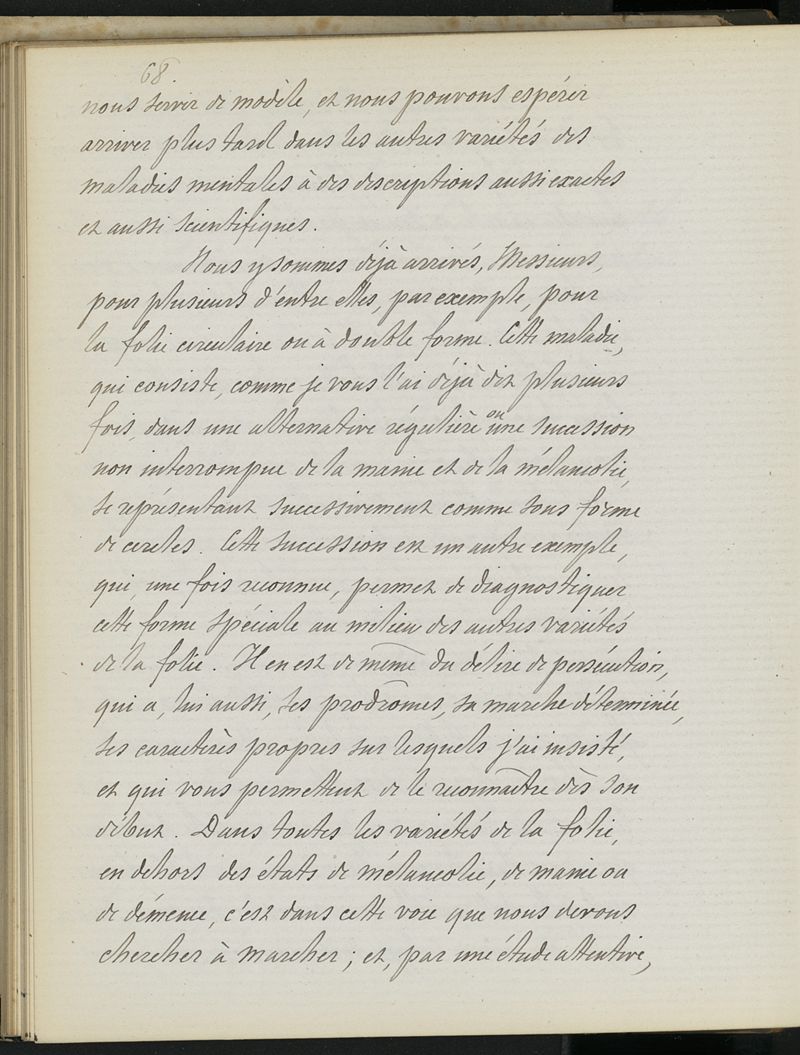 68.
nous servir de modèle, et nous pouvons espérer
arriver plus tard dans les autres variétés des
maladies mentales à des descriptions aussi exactes
et aussi scientifiques.
Nous y sommes déjà arrivés, Messieurs,
pour plusieurs d'entre elles, par exemple, pour
la folie circulaire ou à double forme. Cette maladie,
qui consiste, comme je vous l'ai déjà dit plusieurs
fois, dans une alternative régulière ou une succession
non interrompue de la manie et de la mélancolie,
se représentant successivement comme sous forme
de cercles. Cette succession est un autre exemple,
qui, une fois reconnue, permet de diagnostiquer
cette forme spéciale au milieu des autres variétés
de la folie. Il en est de même du délire de persécution,
qui a, lui aussi, ses prodromes, sa marche déterminée,
ses caractères propres sur lesquels j'ai insisté,
et qui vous permettent de le reconnaître dès son
début. Dans toutes les variétés de la folie,
en dehors des états de mélancolie, de manie ou
de démence, c'est dans cette voie que nous devons
chercher à marcher ; et, par une étude attentive,